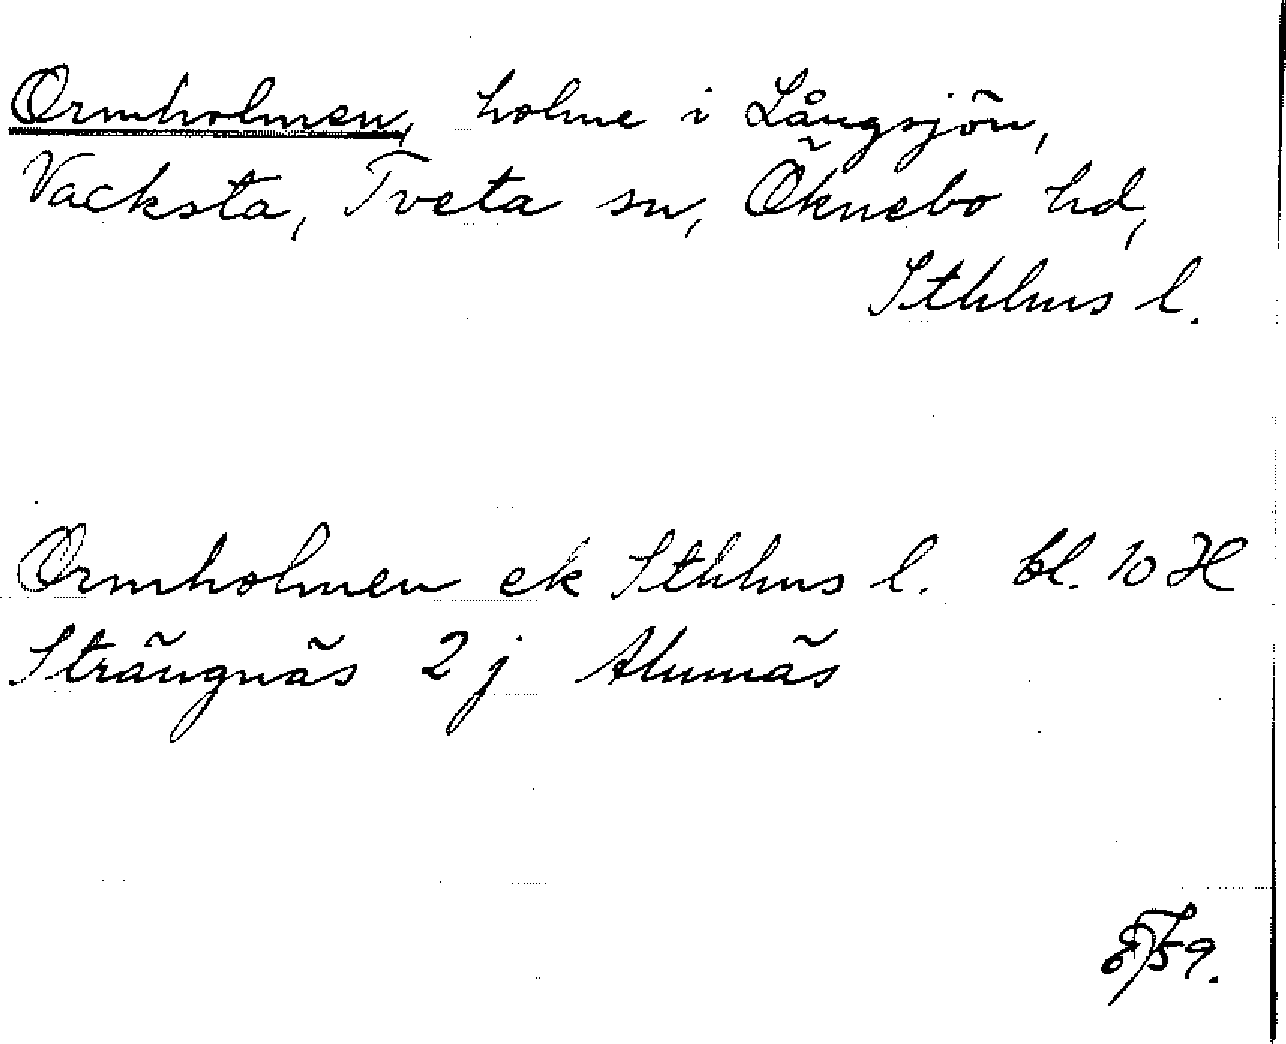 Ormholmen, holme i Långsjön,
Vacksta, Tveta sn, Öknebo hd,
Sthlms l.
Ormholmen ek Sthlms l. bl. 10 H
Strängnäs 2 j Almnäs